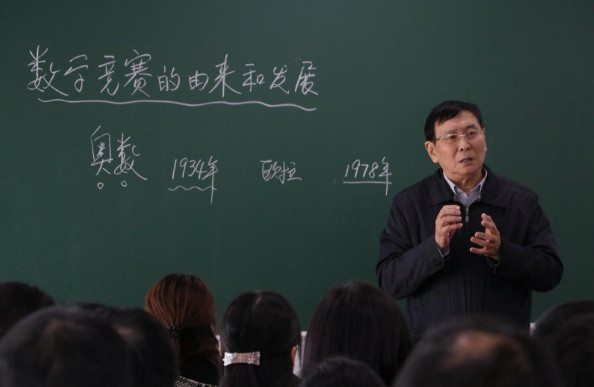 数学竞赛的由来和发展
奥数 1934年 欧拉 1978年